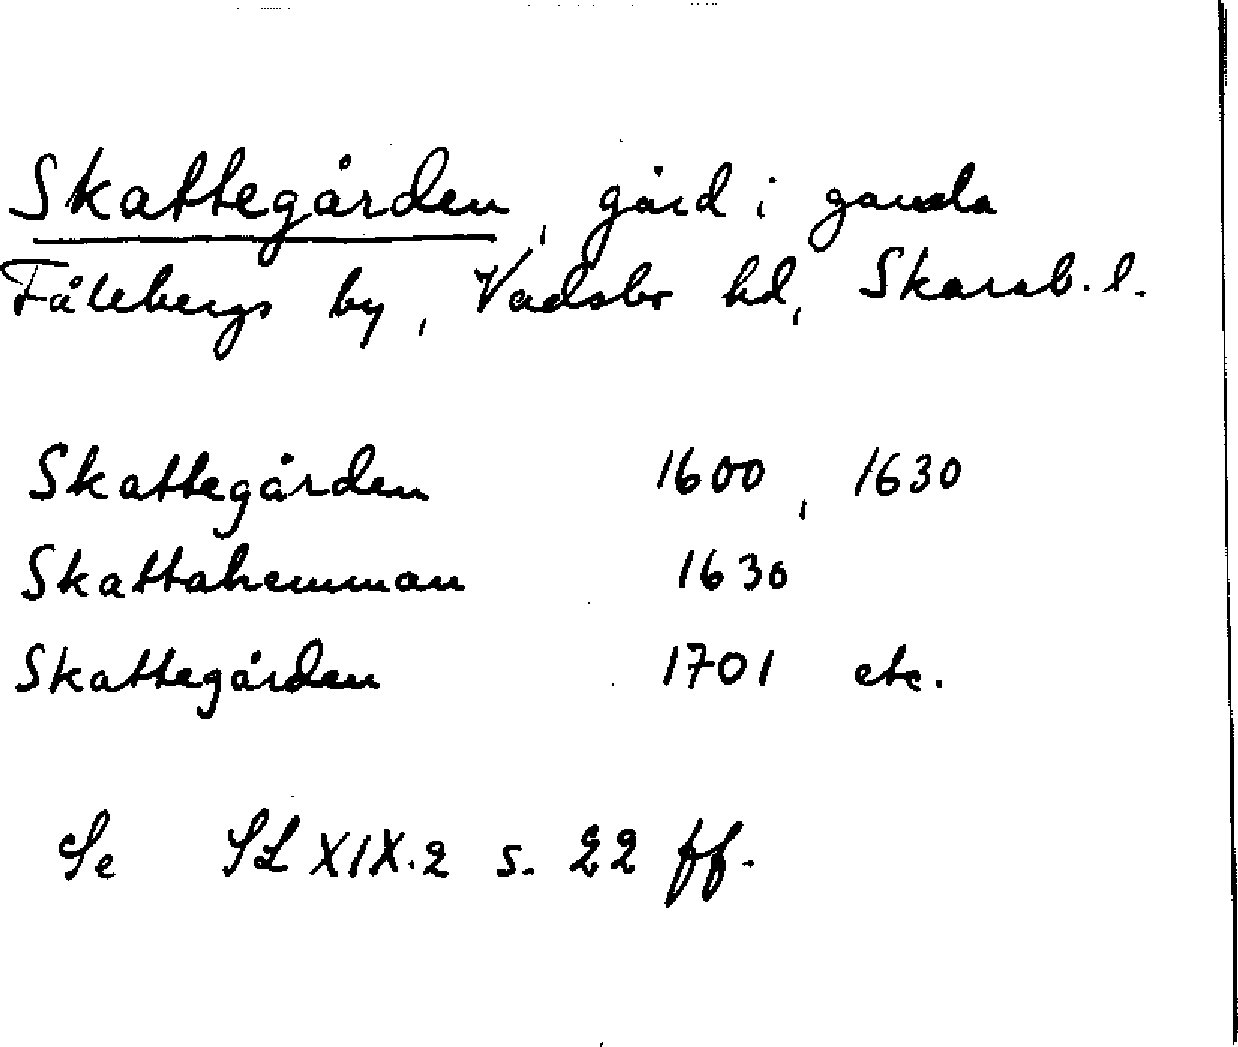 Skattegården, gård i gamla
Fålebergs by, Vadsbo hd, Skarab. l.
Skattegården 1600, 1630
Skattahemman 1630
Skattegården 1701 etc.
Se SL XIX.2 s. 22 ff.